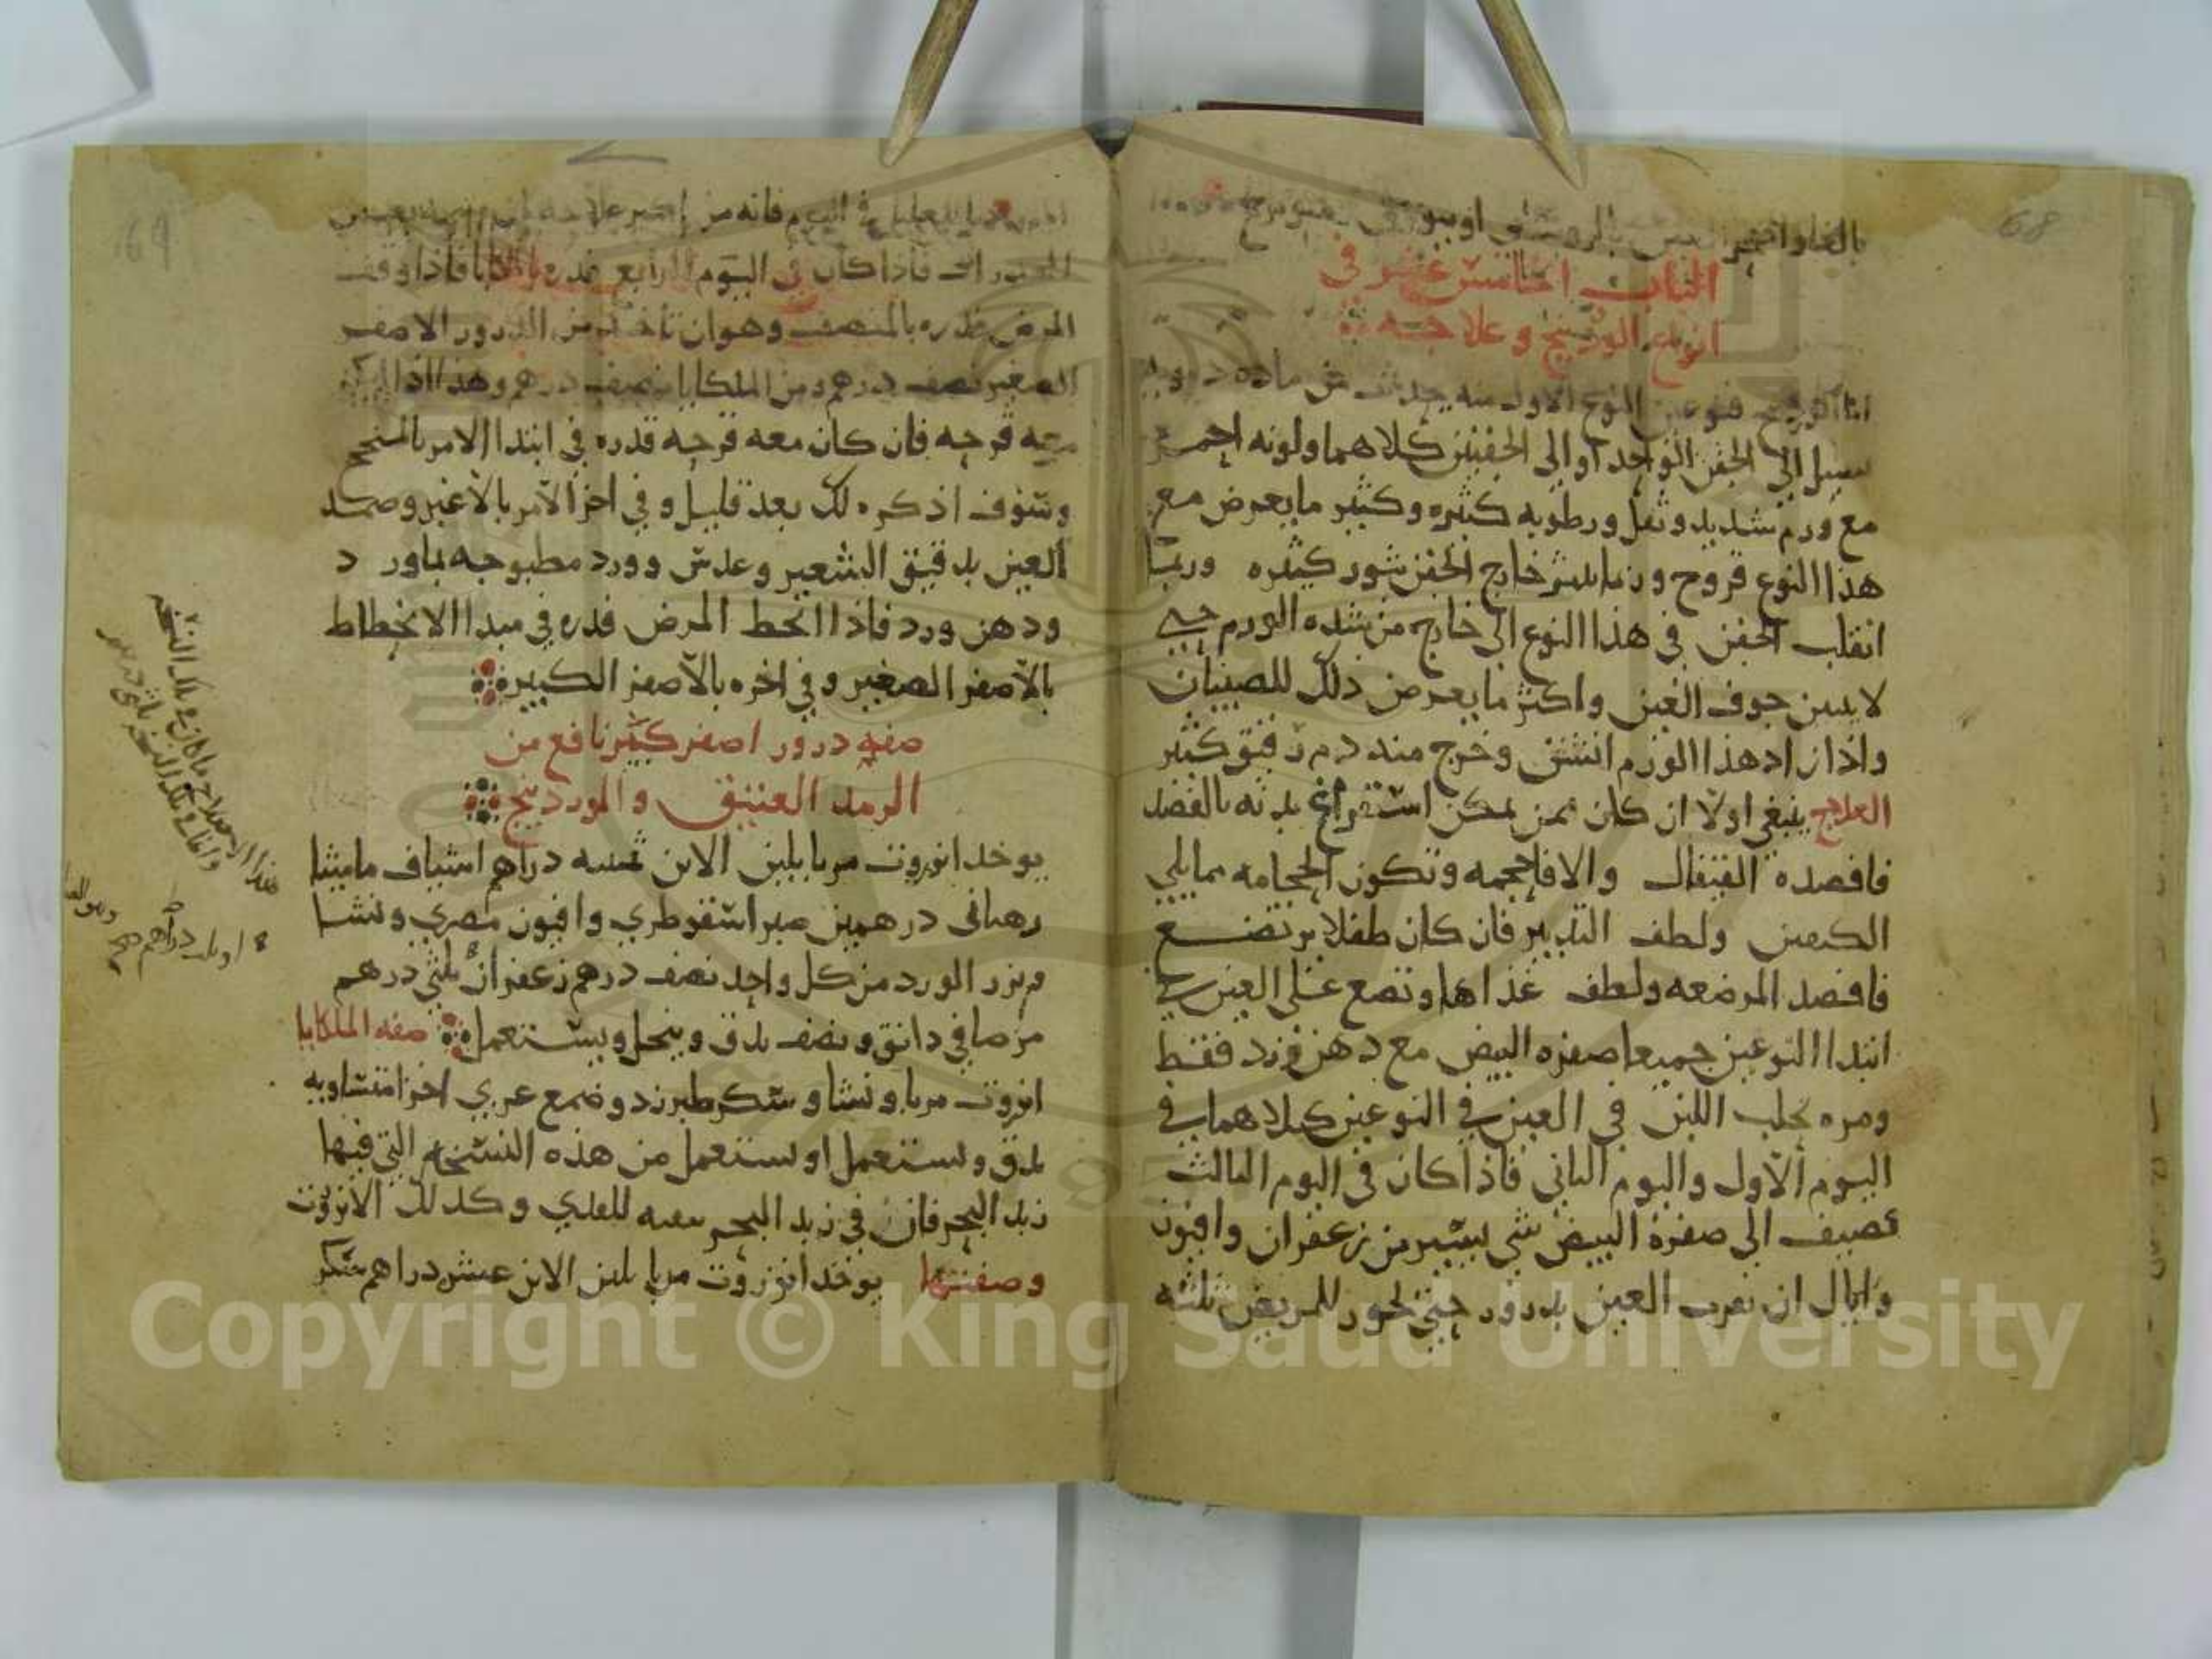 68
الباب الخامس عشر في
انواع الوردينج وعلاجه
اما الوردينج فنوعين النوع الاول منه يحدث من ماده دمويه
تسيل الى الجفن الواحد او الى الجفنين كلاهما ولونه احمر
مع ورم شديد وثقل ورطوبه كثيره وكثير ما يعرض مع
هذا النوع قروح وربما بثر خارج الجفن بثور كثيره وربما
انقلب الجفن في هذا النوع الى خارج من شده الورم حتى
لا يبين جوف العين واكثر ما يعرض ذلك للصبيان
واذا زاد هذا الورم انشق وخرج منه دم رقيق كثير
العلاج ينبغي اولا ان كان ممن يمكن استفراغ بدنه بالفصد
فافصده القيفال والا فاحجمه وتكون الحجامه مما يلي
الكعبين ولطف التدبير فان كان طفلا يرتضع
فافصد المرضعه ولطف غذاها وتضع على العين في
ابتدا النوعين جميعا صفره البيض مع دهن ورد فقط
ومره بحلب اللبن في العين في النوعين كلاهما في
اليوم الاول واليوم الثاني فاذا كان في اليوم الثالث
تضيف الى صفرة البيض شي يسير من زعفران وافيون
واياك ان تقرب العين بدرور حتى تجوز للمريض ثلثه
69
فاذا كان في اليوم الرابع فدره بالملكايا فاذا وقف
المرض فدره بالمنصف وهو ان تاخذ من الدرور الاصفر
الصغير نصف درهم ومن الملكايا نصف درهم وهذا اذا
معه قرحه فان كان معه قرحه فدره في ابتدا الامر بالمنجح
وسوف اذكره لك بعد قليل وفي اخر الامر بالاغبر وضمد
العين بدقيق الشعير وعدس وورد مطبوخه بماورد
ودهن ورد فاذا انحط المرض فدره في مبدا الانحطاط
بالاصفر الصغير وفي اخره بالاصفر الكبير
صفه درور اصفر كبير نافع من
الرمد العتيق والوردينج
يوخد انزروت مربا بلبن الاتن خمسه دراهم اشياف ماميثا
درهمين صبر اسقوطري وافيون مصري ونشا
وبزر الورد من كل واحد نصف درهم زعفران ثلثي درهم
مر صافي دانق ونصف يدق وينخل ويستعمل صفه الملكايا
انزروت مربا ونشا وسكر طبرزد وضمغ عربي اجزا متساويه
يدق ويستعمل او يستعمل من هذه النسخه التي فيها
زبد البحر فان في زبد البحر للعلي وكدلك الانزروت
وصفتها يوخد انزروت مربا بلبن الاتن عشر دراهم سكر
Copyright © King Saud University